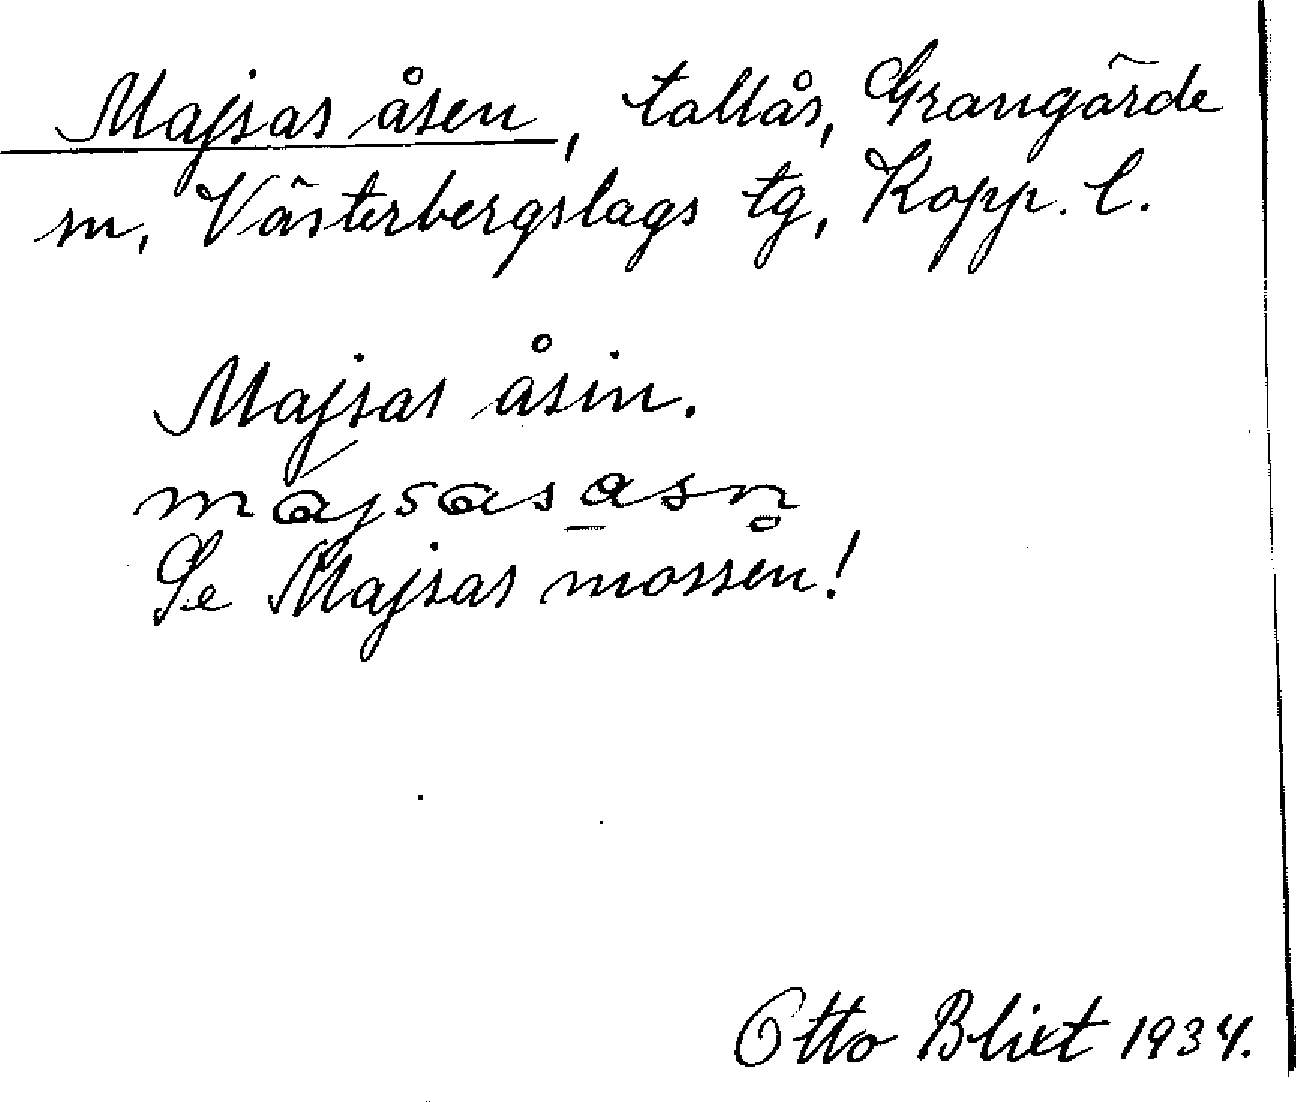 Majsas åsen, tallås, Grangärde
sn, Västerbergslags tg, Kopp. l.
Majsas åsin.
Se Majsas mossen!
Otto Blixt 1934.